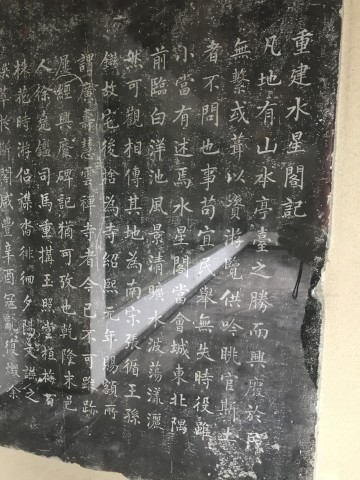 重建水星閣記
凡地有山水亭臺之勝而興廢於民
無繫或葺以資游覽供吟眺官斯土
者不問也事苟宜民舉無失時役雖
小當有述焉水星閣當會城東北隅
前臨白洋池風景清曠水波蕩漾灑
然可觀相傳其地為南宋張循王孫
鎡故宅後捨為寺紹熙元年賜額所
謂廣壽慧雲禪寺者今已不可蹤跡
屢經興廢碑記猶可攷也乾隆末邑
人徐堯鑑司馬重搆玉照堂植梅百
株花時游侶襍沓徘徊夕陽
草於斯閣咸豐辛酉